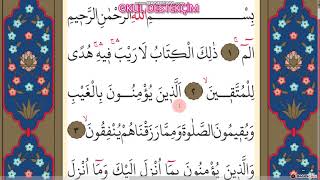 OKUL DESTEKÇİM
بِسْــــــمِ اللّٰهِ الرَّحْمٰنِ الرَّحٖيمِ
الٓمٓ ۚ ﴿١﴾ ذٰلِكَ الْكِتَابُ لَا رَيْبَ ۚۛ فٖيهِ ۚۛ هُدًى
لِلْمُتَّقٖينَ ۙ ﴿٢﴾ اَلَّذٖينَ يُؤْمِنُونَ بِالْغَيْبِ
وَيُقٖيمُونَ الصَّلٰوةَ وَمِمَّا رَزَقْنَاهُمْ يُنْفِقُونَ ۙ ﴿٣﴾
وَالَّذٖينَ يُؤْمِنُونَ بِمَٓا اُنْزِلَ اِلَيْكَ وَمَٓا اُنْزِلَ